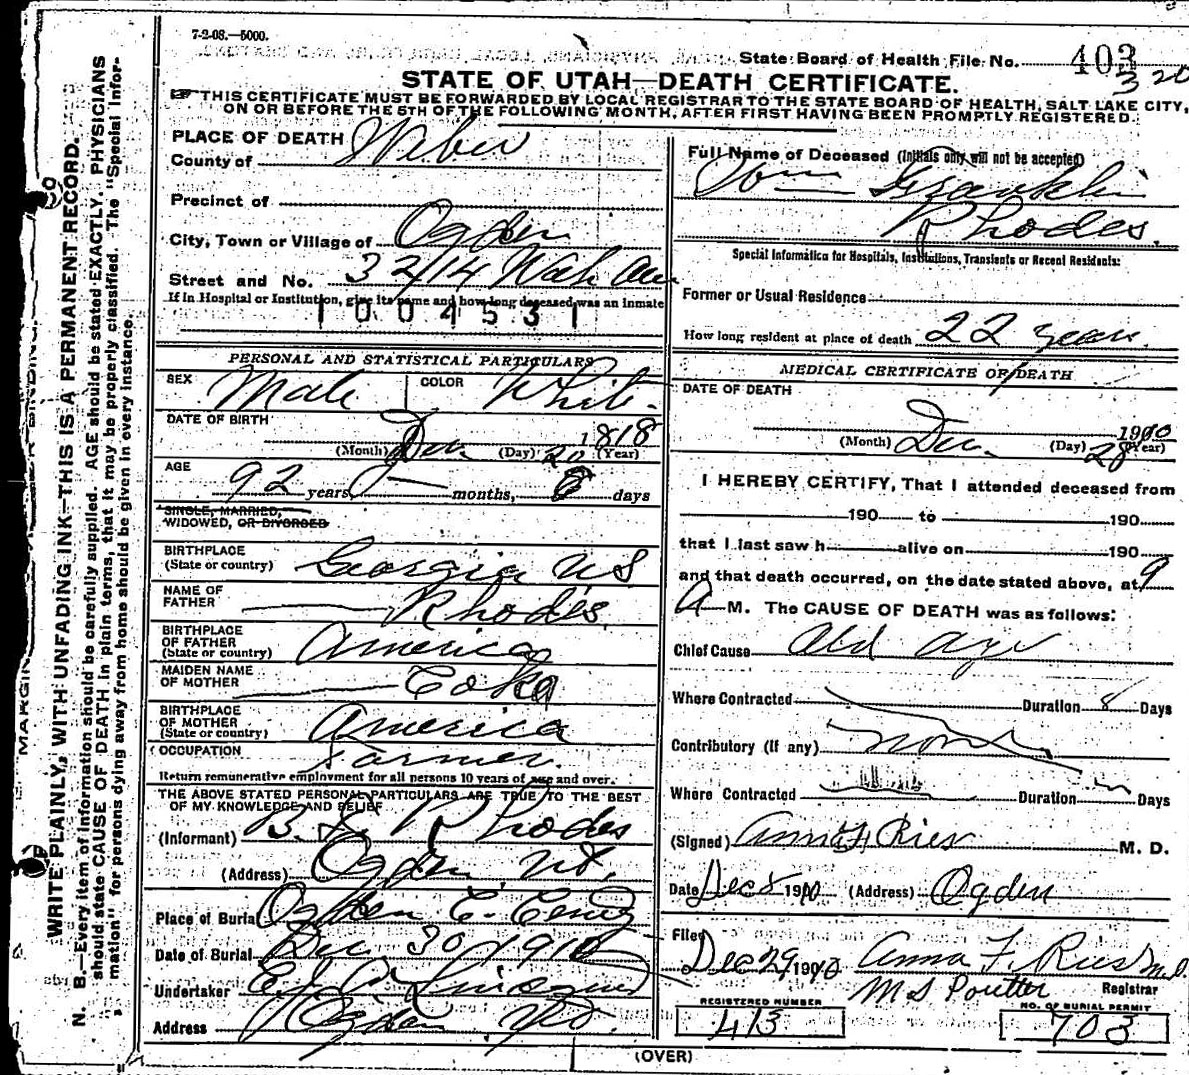 7-2-08.—5000.
State Board of Health File No. 403
320
STATE OF UTAH—DEATH CERTIFICATE.
THIS CERTIFICATE MUST BE FORWARDED BY LOCAL REGISTRAR TO THE STATE BOARD OF HEALTH, SALT LAKE CITY,
ON OR BEFORE THE 5TH OF THE FOLLOWING MONTH, AFTER FIRST HAVING BEEN PROMPTLY REGISTERED.
WRITE PLAINLY, WITH UNFADING INK—THIS IS A PERMANENT RECORD.
N. B.—Every item of information should be carefully supplied. AGE should be stated EXACTLY. PHYSICIANS
should state CAUSE OF DEATH in plain terms, that it may be properly classified. The "Special Infor-
mation" for persons dying away from home should be given in every instance.
PLACE OF DEATH
County of Weber
Precinct of
City, Town or Village of Ogden
Street and No. 3214 Wash Ave
If in Hospital or Institution, give its name and how long deceased was an inmate
1004531
PERSONAL AND STATISTICAL PARTICULARS
SEX Male COLOR White
DATE OF BIRTH
1818
(Month) Dec (Day) 20 (Year)
AGE
92 years, months, 8 days
SINGLE, MARRIED,
WIDOWED, OR DIVORCED
BIRTHPLACE
(State or country) Georgia US
NAME OF
FATHER Rhodes.
BIRTHPLACE
OF FATHER
(State or country) America
MAIDEN NAME
OF MOTHER
BIRTHPLACE
OF MOTHER
(State or country) America
OCCUPATION Farmer.
Return remunerative employment for all persons 10 years of age and over.
THE ABOVE STATED PERSONAL PARTICULARS ARE TRUE TO THE BEST
OF MY KNOWLEDGE AND BELIEF
(Informant) Rhodes
(Address) Ogden, Ut.
Place of Burial Ogden C. Cemy
Date of Burial Dec 30 1910
Undertaker
Address Ogden
Full Name of Deceased (Initials only will not be accepted)
Wm Franklin
Rhodes.
Special Information for Hospitals, Institutions, Transients or Recent Residents:
Former or Usual Residence
How long resident at place of death 22 years.
MEDICAL CERTIFICATE OF DEATH
DATE OF DEATH
1910
(Month) Dec. (Day) 28 (Year)
I HEREBY CERTIFY, That I attended deceased from
190 to 190
that I last saw h alive on 190
and that death occurred, on the date stated above, at 9
A M. The CAUSE OF DEATH was as follows:
Chief Cause Old age
Where Contracted Duration 8 Days
Contributory (If any) none
Where Contracted Duration Days
(Signed) Anna F Ries M. D.
Date Dec 1910 (Address) Ogden
Filed Dec 29 1910 Anna F. Ries M.D.
Registrar
REGISTERED NUMBER
413
NO. OF BURIAL PERMIT
703
(OVER)